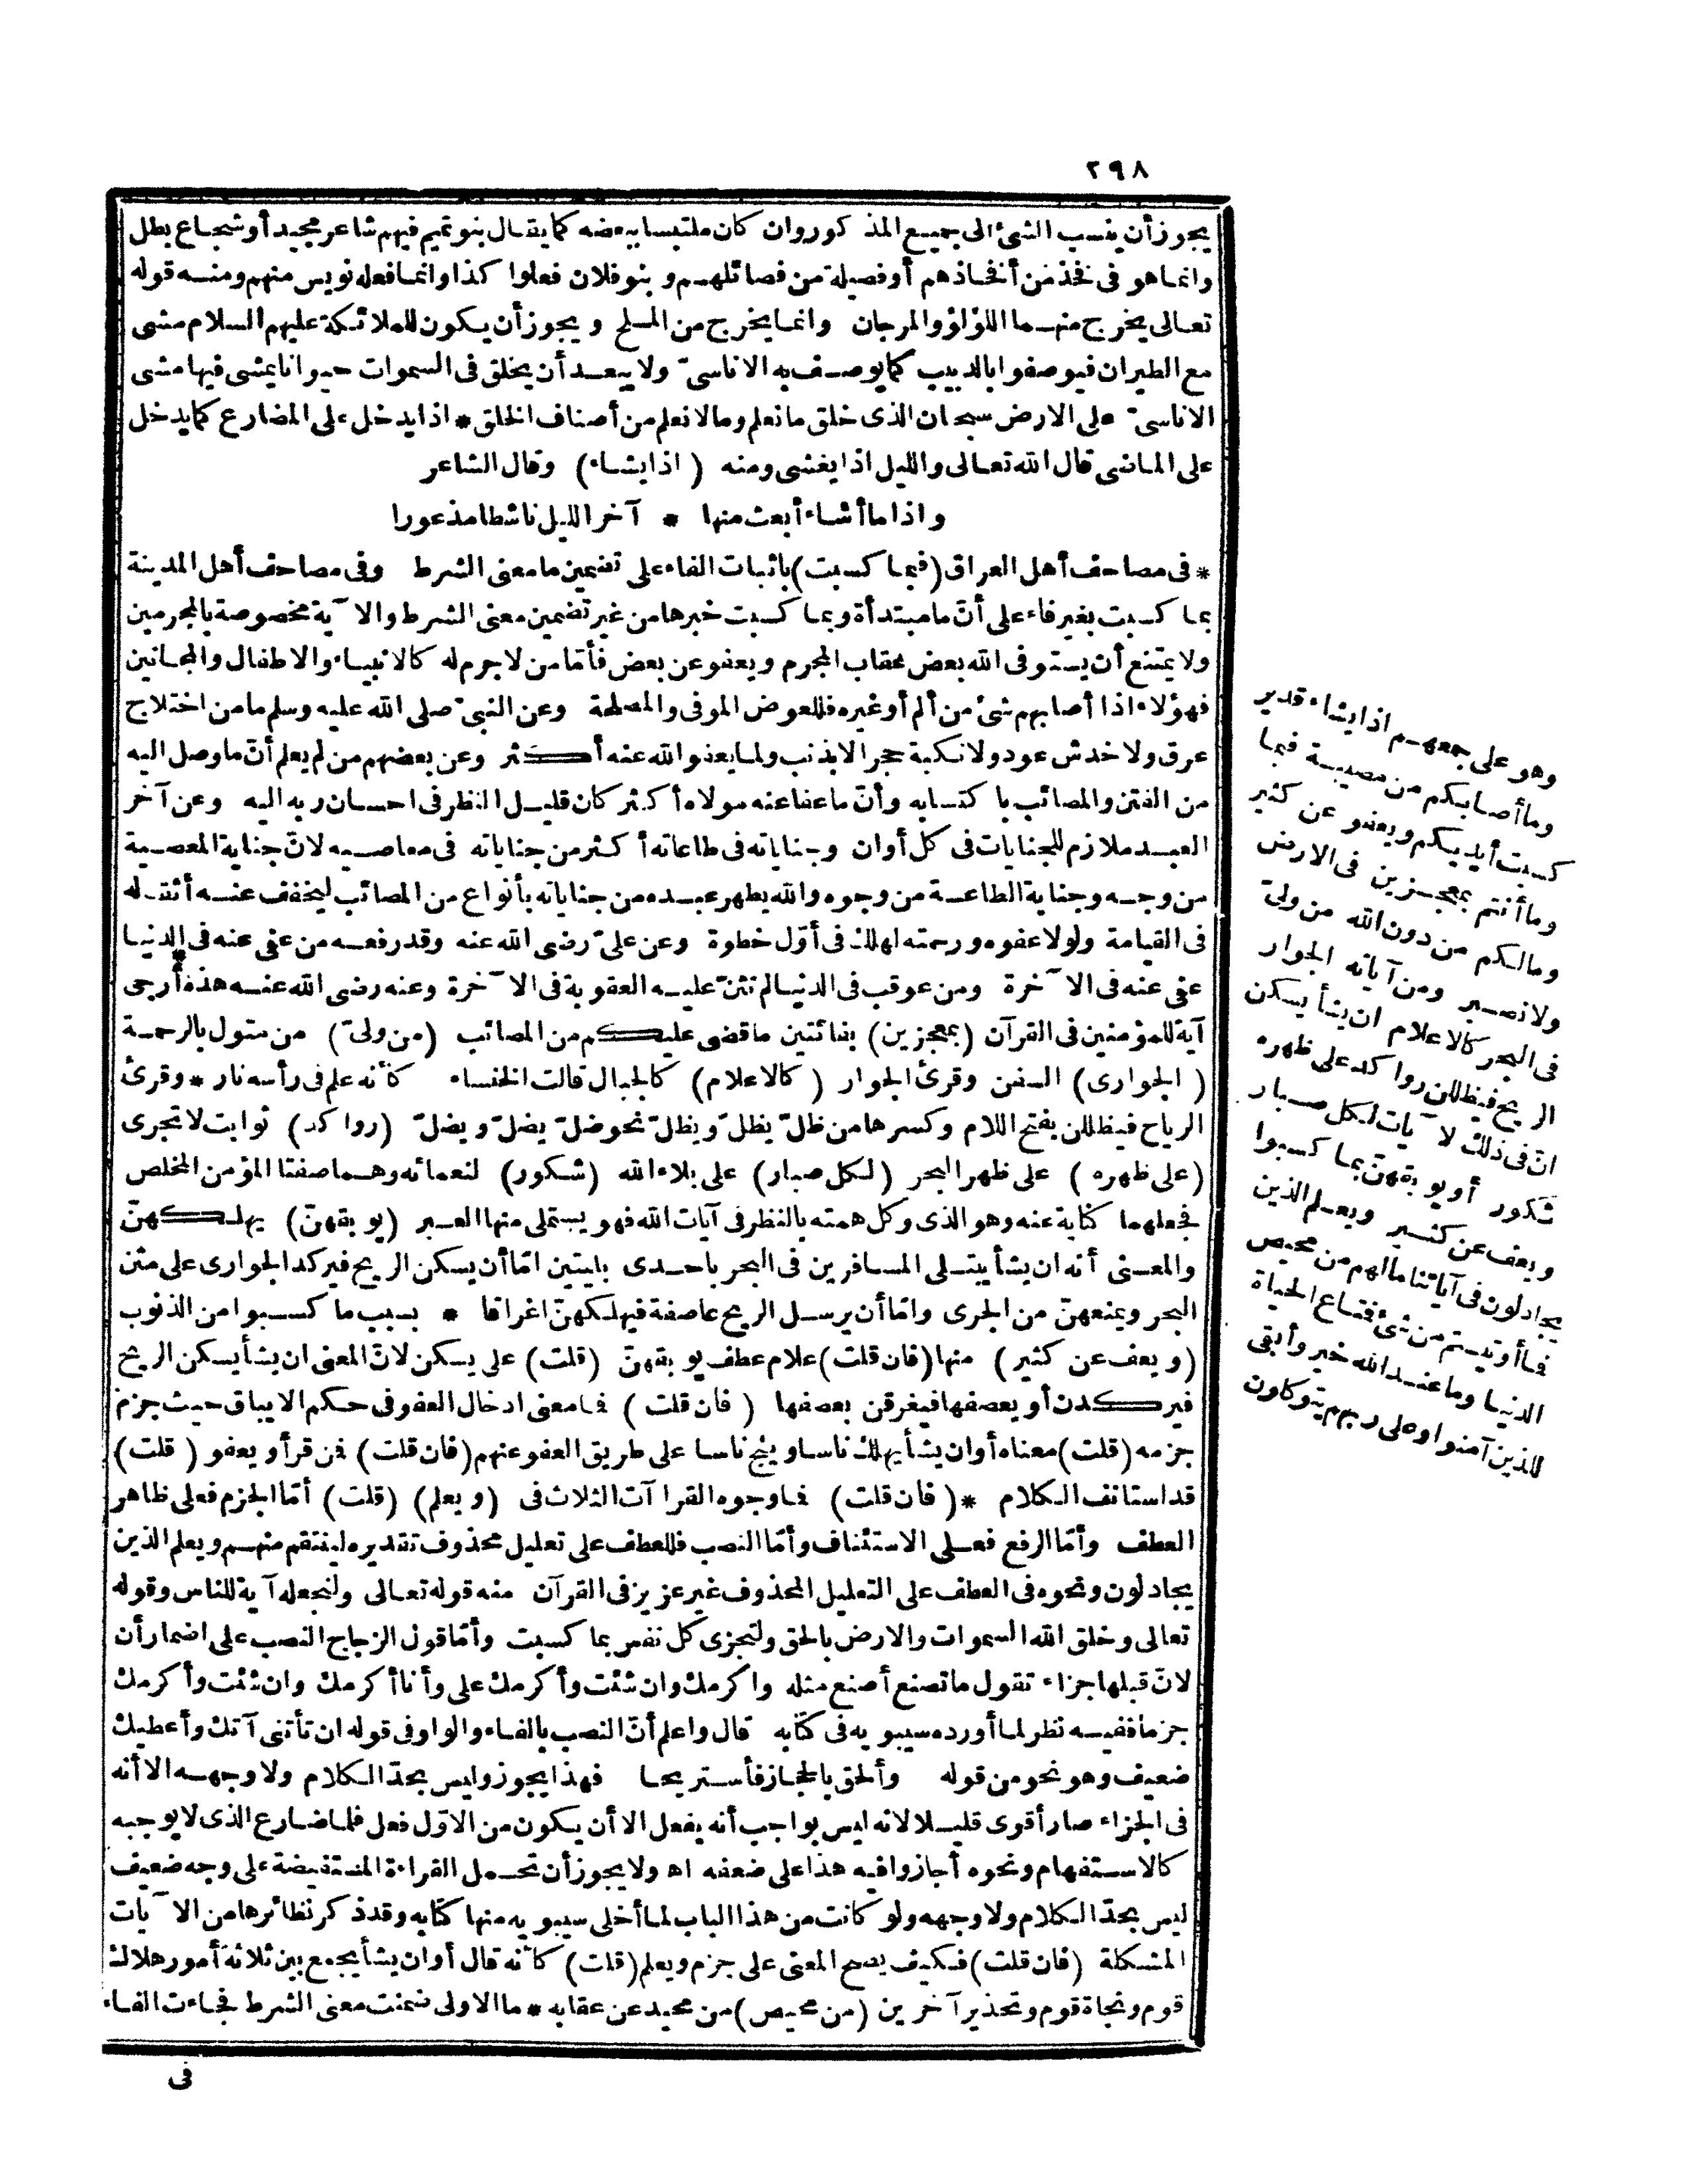 ٢٩٨
يجوز أن ينسب الشئ الى جميع المذكور وان كان ملتبسا ببعضه كما يقال بنو تميم فيهم شاعر مجيد أو شجاع بطل
وانما هو فى فخذ من أفخاذهم أو فصيلة من فصائلهم و بنو فلان فعلوا كذا وانما فعله نويس منهم ومنه قوله
تعالى يخرج منهما اللؤلؤ والمرجان وانما يخرج من الملح و يجوز أن يكون للملائكة عليهم السلام مشى
مع الطيران فيوصفوا بالدبيب كما يوصف به الاناسىّ ولا يبعد أن يخلق فى السموات حيوانا يمشى فيها مشى
الاناسىّ على الارض سبحان الذى خلق ما نعلم وما لا نعلم من أصناف الخلق * اذا يدخل على المضارع كما يدخل
على الماضى قال الله تعالى والليل اذا يغشى ومنه ( اذا يشاء ) وقال الشاعر
و اذا ما أشاء أبعث منها * آخر الليل ناشطا مذعورا
* فى مصاحف أهل العراق ( فبما كسبت ) باثبات الفاء على تضمين ما معنى الشرط وفى مصاحف أهل المدينة
بما كسبت بغير فاء على أنّ ما مبتدأة و بما كسبت خبرها من غير تضمين معنى الشرط والآية مخصوصة بالمجرمين
ولا يمتنع أن يستوفى الله بعض عقاب المجرم و يعفو عن بعض فأمّا من لا جرم له كالانبياء والاطفال والمجانين
فهؤلاء اذا أصابهم شئ من ألم أو غيره فللعوض الموفى والمصلحة وعن النبىّ صلى الله عليه وسلم ما من اختلاج
عرق ولا خدش عود ولا نكبة حجر الا بذنب ولما يعفو الله عنه أكثر وعن بعضهم من لم يعلم أنّ ما وصل اليه
من الفتن والمصائب با كتسابه وأنّ ما عفا عنه مولاه أكثر كان قليل النظر فى احسان ربه اليه وعن آخر
العبد ملازم للجنايات فى كل أوان وجناياته فى طاعاته أكثر من جناياته فى معاصيه لانّ جناية المعصية
من وجه وجناية الطاعة من وجوه والله يطهر عبده من جناياته بأنواع من المصائب ليخفف عنه أثقاله
فى القيامة ولولا عفوه و رحمته لهلك فى أوّل خطوة وعن علىّ رضى الله عنه وقد رفعه من عفى عنه فى الدنيا
عفى عنه فى الآخرة ومن عوقب فى الدنيا لم تثنّ عليه العقوبة فى الآخرة وعنه رضى الله عنه هذه أرجى
آية للمؤمنين فى القرآن ( بمعجزين ) بفائتين ما قضى عليكم من المصائب ( من ولىّ ) من متول بالرحمة
( الجوارى ) السفن وقرئ الجوار ( كالاعلام ) كالجبال قالت الخنساء كأنه علم فى رأسه نار * وقرئ
الرياح فيظللن بفتح اللام وكسرها من ظلّ يظلّ و يظلّ نحو ضلّ يضلّ و يضلّ ( رواكد ) ثوابت لا تجرى
( على ظهره ) على ظهر البحر ( لكل صبار ) على بلاء الله ( شكور ) لنعمائه وهما صفتا المؤمن المخلص
فجعلهما كناية عنه وهو الذى وكل همته بالنظر فى آيات الله فهو يستملى منها العبر ( يو بقهنّ ) يهلكهنّ
والمعنى أنه ان يشأ يبتلى المسافرين فى البحر باحدى بليتين امّا أن يسكن الريح فيركد الجوارى على متن
البحر و يمنعهنّ من الجرى وامّا أن يرسل الريح عاصفة فيهلكهنّ اغراقا * بسبب ما كسبوا من الذنوب
( و يعف عن كثير ) منها ( فان قلت ) علام عطف يو بقهنّ ( قلت ) على يسكن لانّ المعنى ان يشأ يسكن الريح
فيركدن أو يعصفها فيغرقن بعصفها ( فان قلت ) فما معنى ادخال العفو فى حكم الايباق حيث جزم
جزمه ( قلت ) معناه أوان يشأ يهلك ناسا و ينج ناسا على طريق العفو عنهم ( فان قلت ) فمن قرأ و يعفو ( قلت )
قد استأنف الكلام * ( فان قلت ) فما وجوه القراآت الثلاث فى ( و يعلم ) ( قلت ) أمّا الجزم فعلى ظاهر
العطف وأمّا الرفع فعلى الاستئناف وأمّا النصب فللعطف على تعليل محذوف تقديره لينتقم منهم و يعلم الذين
يجادلون ونحوه فى العطف على التعليل المحذوف غير عزيز فى القرآن منه قوله تعالى ولنجعله آية للناس وقوله
تعالى وخلق الله السموات والارض بالحق ولتجزى كل نفس بما كسبت وأمّا قول الزجاج النصب على اضمار أن
لانّ قبلها جزاء تقول ما تصنع أصنع مثله واكرمك وان شئت وأكرمك على وأنا أكرمك وان شئت وأكرمك
جزما ففيه نظر لما أورده سيبو يه فى كتابه قال واعلم أنّ النصب بالفاء والواو فى قوله ان تأتنى آتك وأعطيك
ضعيف وهو نحو من قوله وألحق بالحجاز فأستريحا فهذا يجوز وليس بحدّ الكلام ولا وجهه الا أنه
فى الجزاء صار أقوى قليلا لانه ليس بواجب أنه يفعل الا أن يكون من الاوّل فعل فلما ضارع الذى لا يوجبه
كالاستفهام ونحوه أجازوا فيه هذا على ضعفه اه ولا يجوز أن تحمل القراءة المستفيضة على وجه ضعيف
ليس بحدّ الكلام ولا وجهه ولو كانت من هذا الباب لما أخلى سيبو يه منها كتابه وقد ذكر نظائرها من الآيات
المشكلة ( فان قلت ) فكيف يصح المعنى على جزم و يعلم ( قلت ) كأنه قال أوان يشأ يجمع بين ثلاثة أمور هلاك
قوم ونجاة قوم وتحذير آخرين ( من محيص ) من محيد عن عقابه * ما الاولى ضمنت معنى الشرط فجاءت الفاء
فى
وهو على جمعهم اذا يشاء قدير
وما أصابكم من مصيبة فبما
كسبت أيديكم و يعفو عن كثير
وما أنتم بمعجزين فى الارض
ومالكم من دون الله من ولىّ
ولا نصير ومن آياته الجوار
فى البحر كالاعلام ان يشأ يسكن
الريح فيظللن رواكد على ظهره
انّ فى ذلك لآيات لكل صبار
شكور أو يو بقهنّ بما كسبوا
و يعف عن كثير و يعلم الذين
يجادلون فى آياتنا مالهم من محيص
فما أوتيتم من شئ فمتاع الحياة
الدنيا وما عند الله خير وأبقى
للذين آمنوا وعلى ربهم يتوكلون